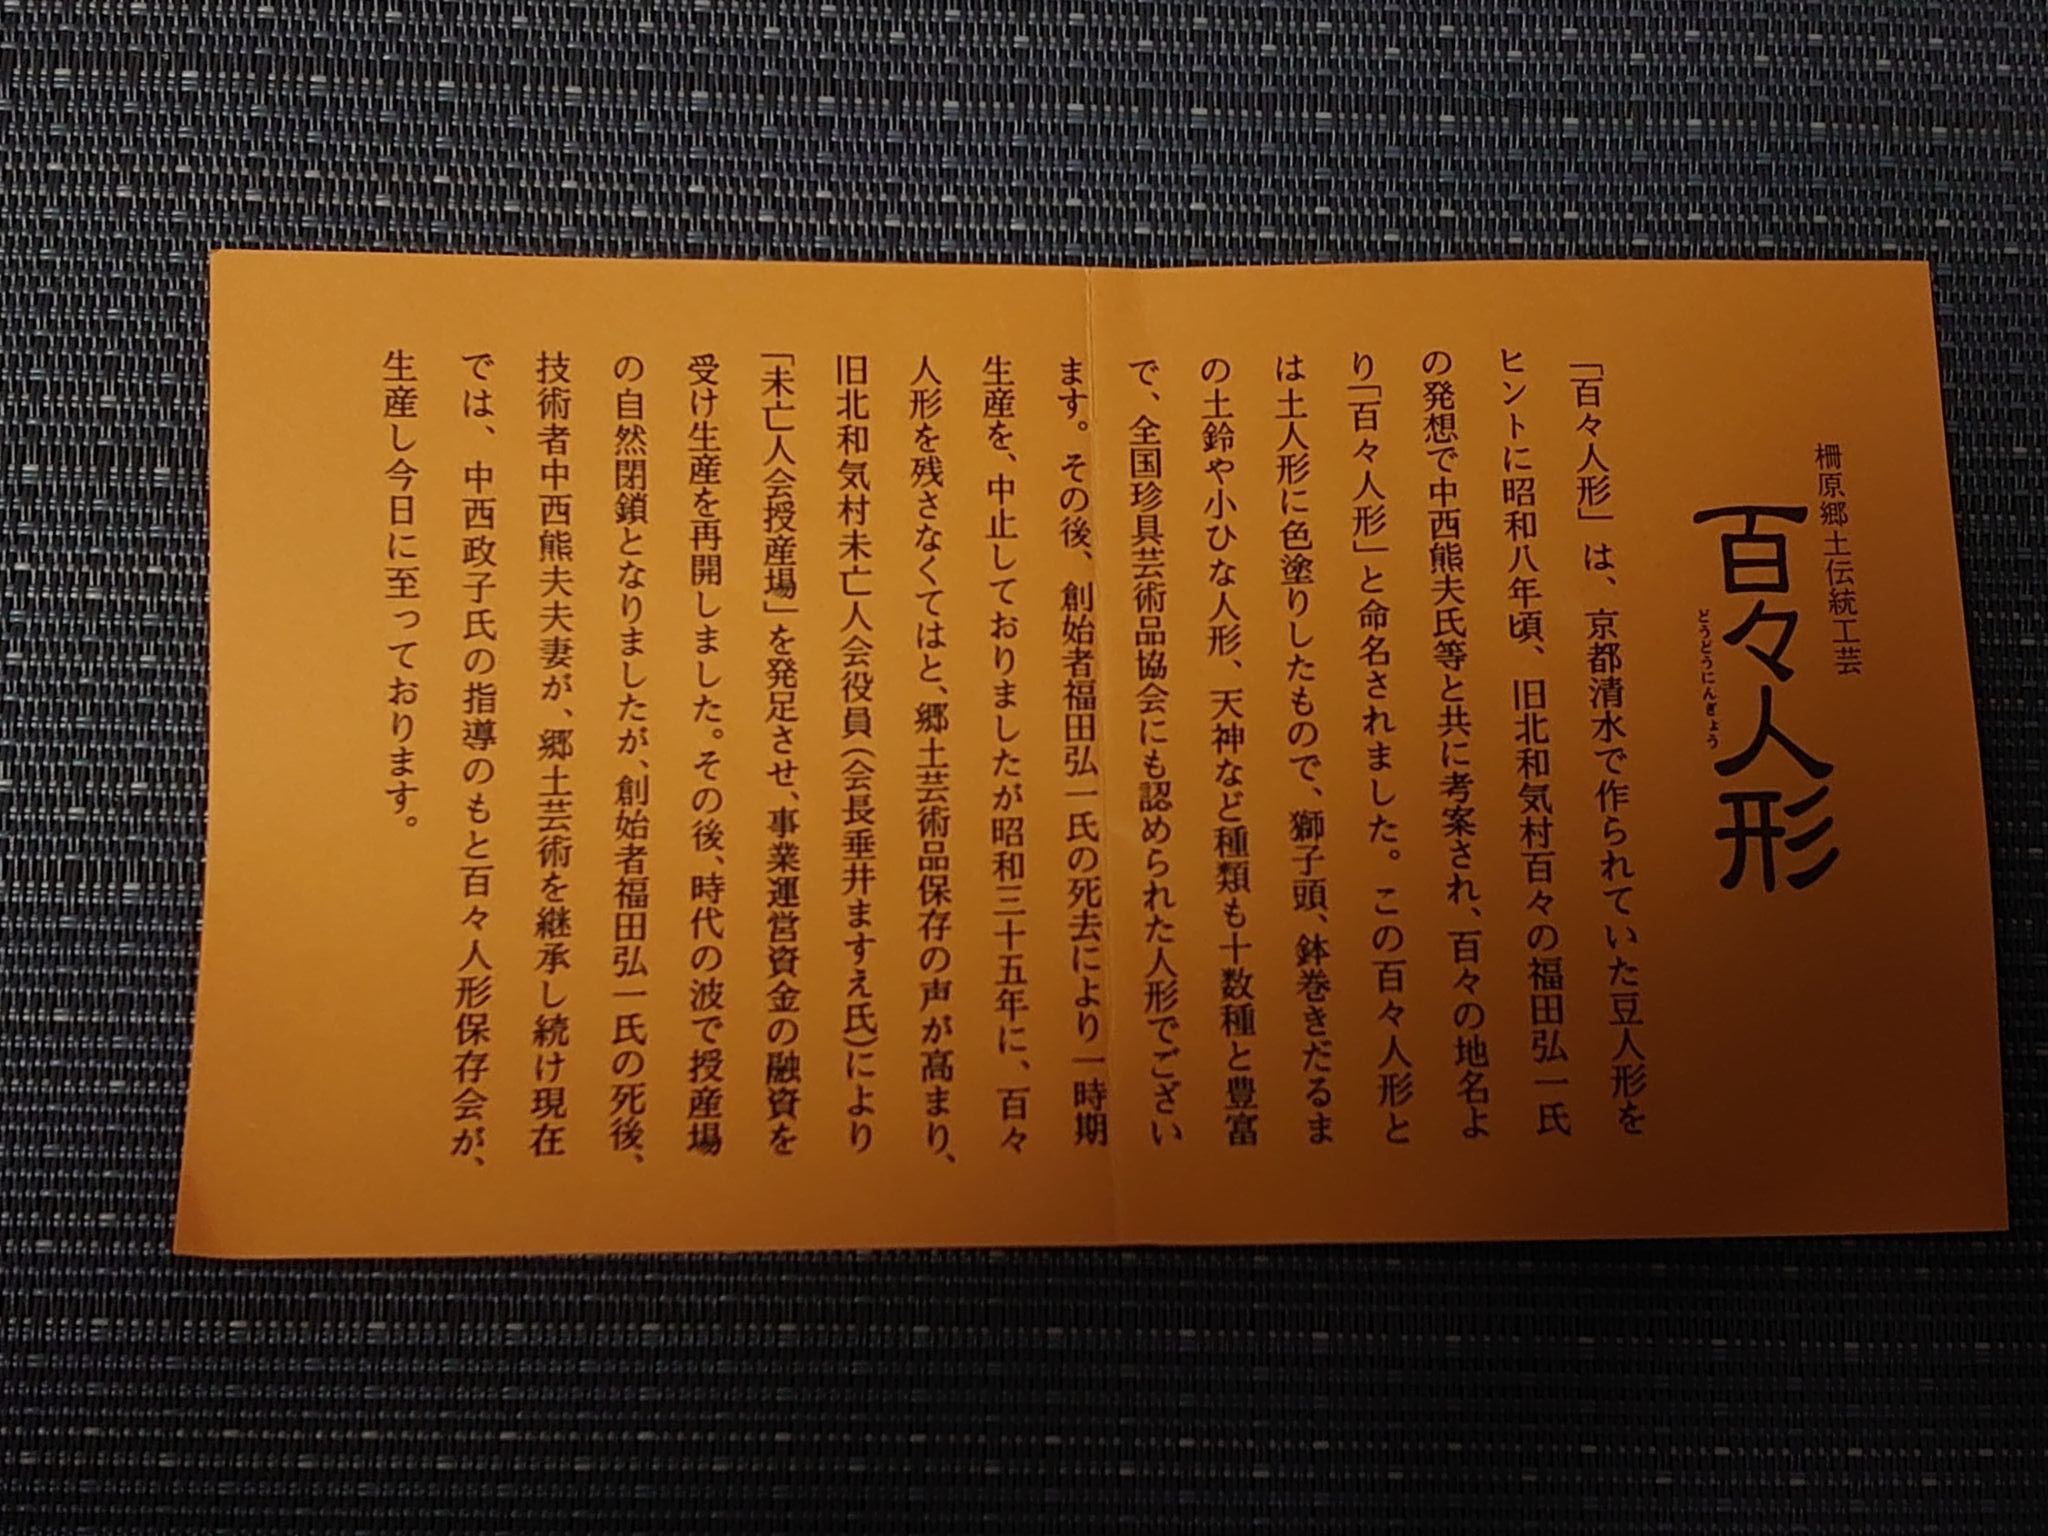 柵原郷土伝統工芸
百々人形
どうどうにんぎょう
「百々人形」は、京都清水で作られていた豆人形を
ヒントに昭和八年頃、旧北和気村百々の福田弘一氏
の発想で中西熊夫氏等と共に考案され、百々の地名よ
り「百々人形」と命名されました。この百々人形と
は土人形に色塗りしたもので、獅子頭、鉢巻きだるま
の土鈴や小ひな人形、天神など種類も十数種と豊富
で、全国珍具芸術品協会にも認められた人形でござい
ます。その後、創始者福田弘一氏の死去により一時期
生産を、中止しておりましたが昭和三十五年に、百々
人形を残さなくてはと、郷土芸術品保存の声が高まり、
旧北和気村未亡人会役員(会長垂井ますえ氏)により
「未亡人会授産場」を発足させ、事業運営資金の融資を
受け生産を再開しました。その後、時代の波で授産場
の自然閉鎖となりましたが、創始者福田弘一氏の死後、
技術者中西熊夫夫妻が、郷土芸術を継承し続け現在
では、中西政子氏の指導のもと百々人形保存会が、
生産し今日に至っております。